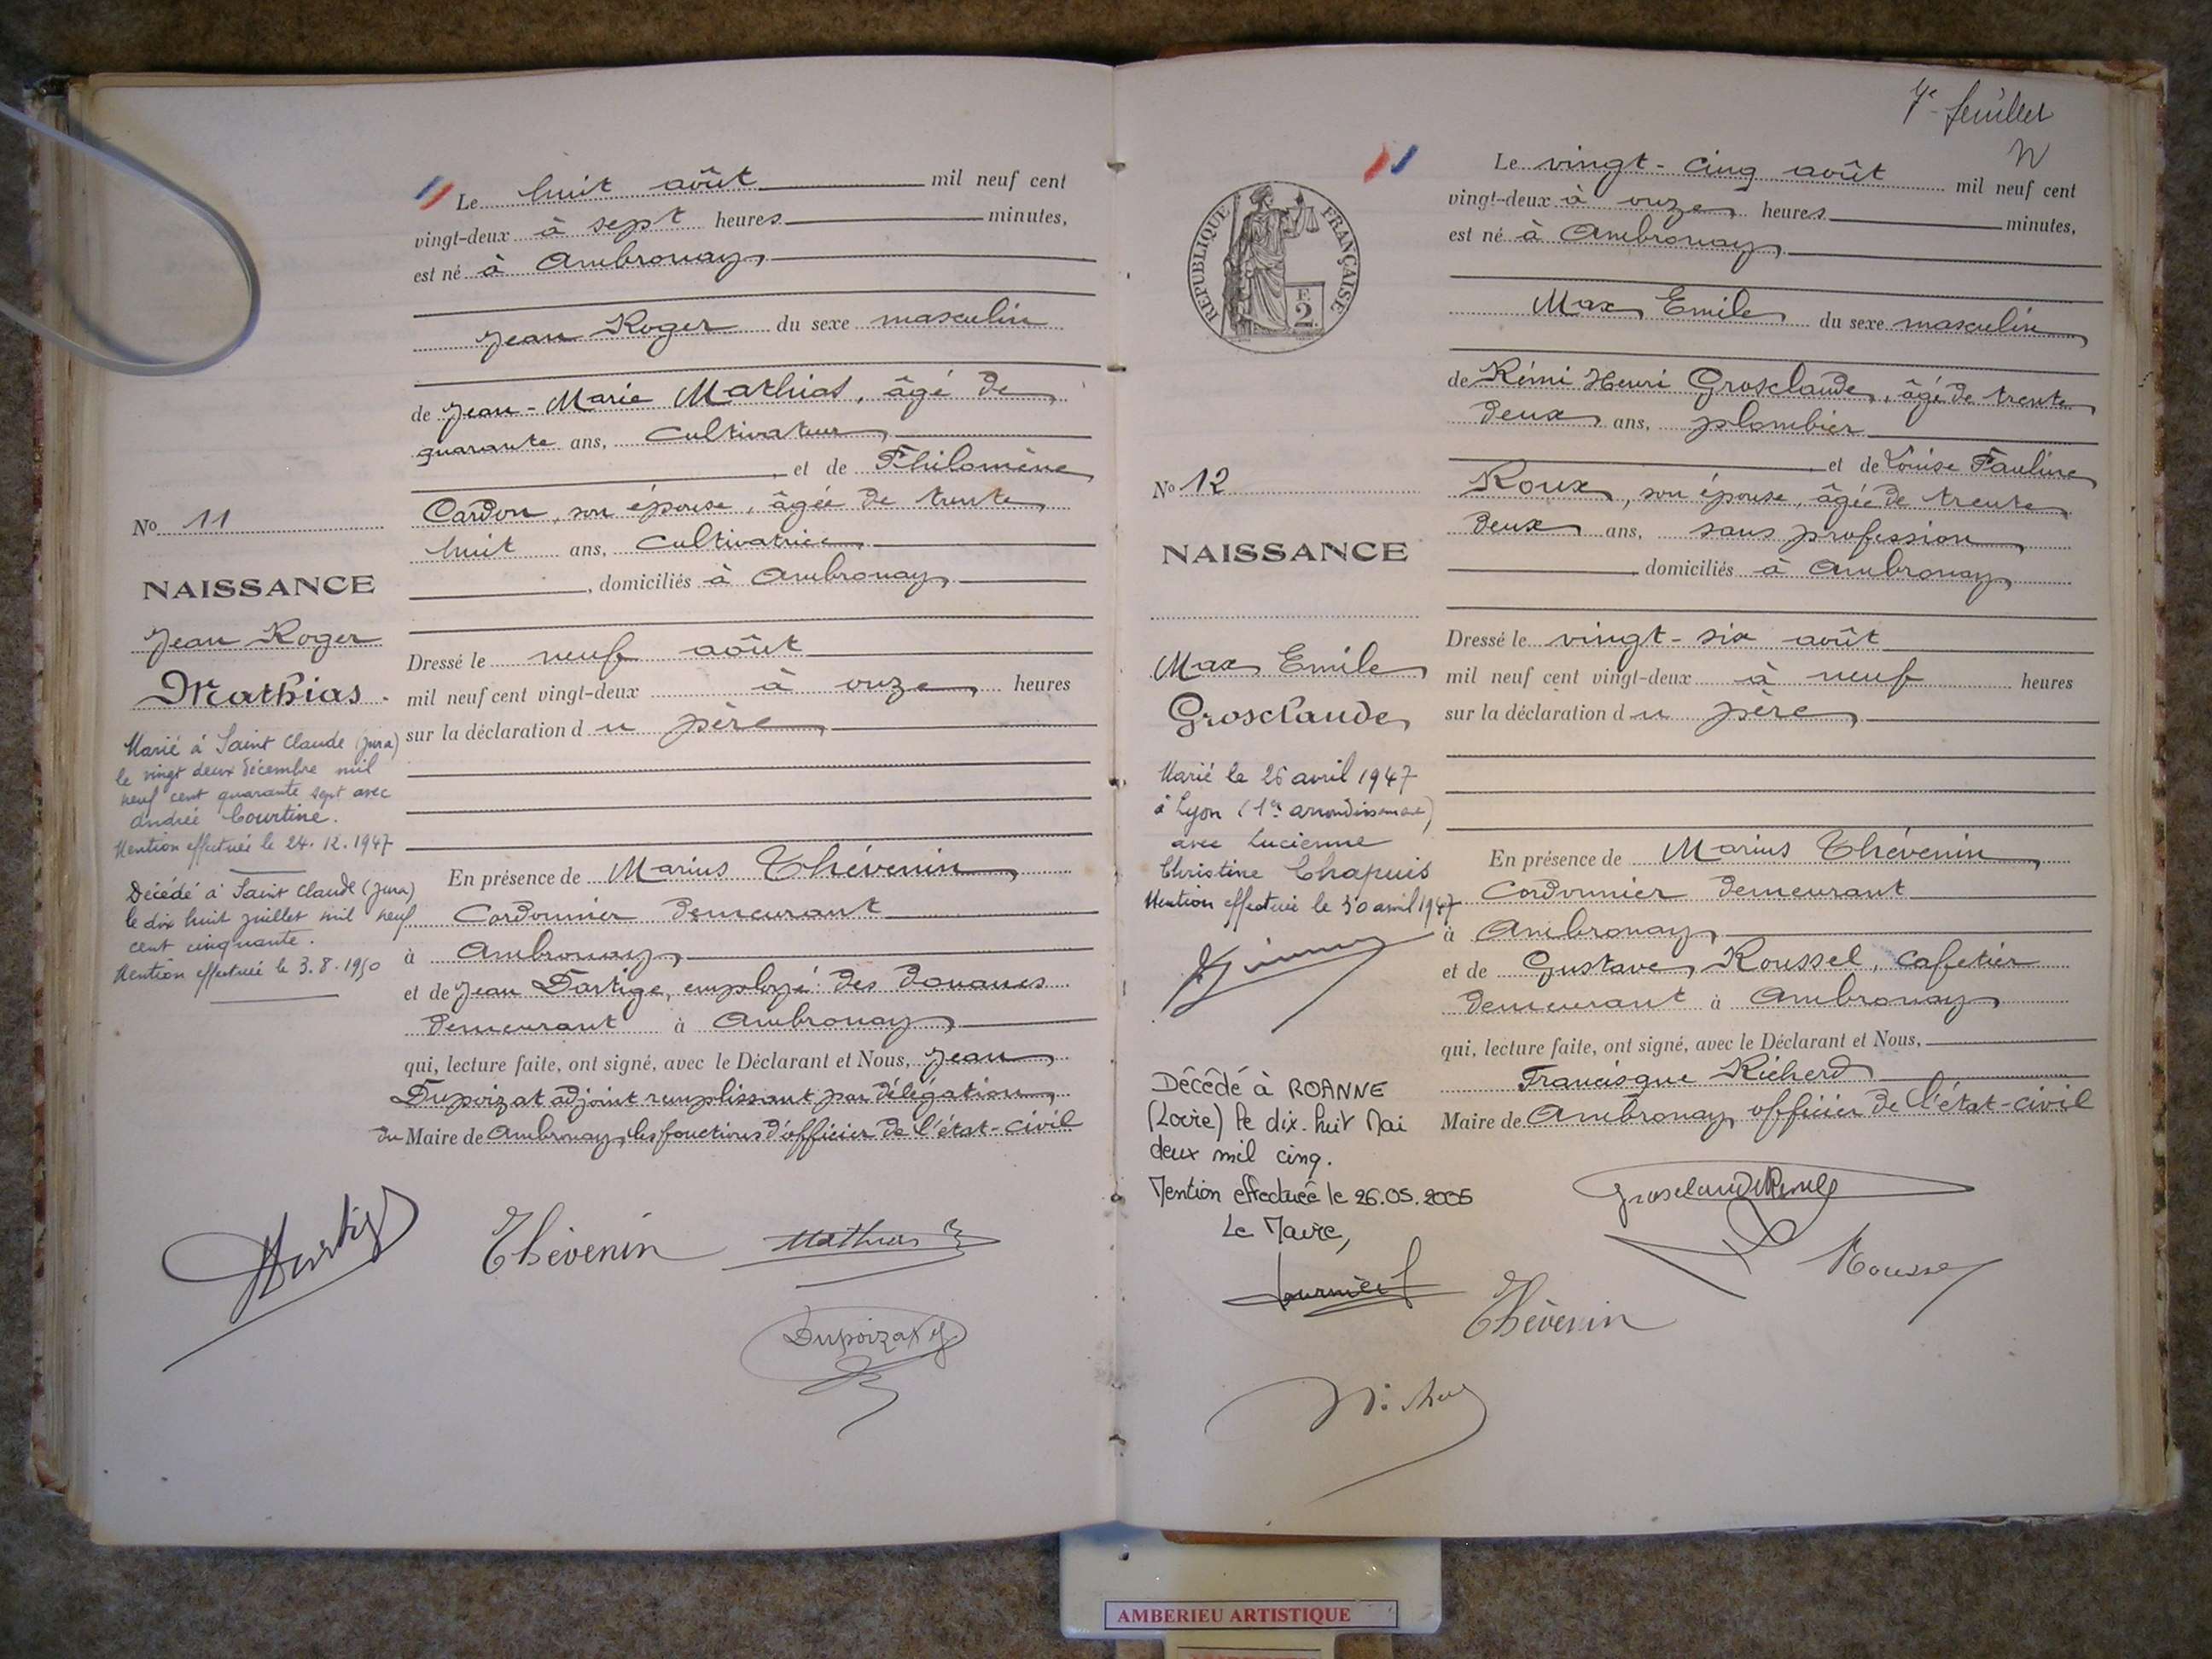 Le huit août mil neuf cent
vingt-deux à sept heures minutes,
est né à Ambronay,
Jean Roger du sexe masculin
de Jean-Marie Mathias, âgé de
quarante ans, cultivateur
et de Philomène
Cardon, son épouse, âgée de trente
huit ans, cultivatrice
, domiciliés à Ambronay,
Dressé le neuf août
mil neuf cent vingt-deux à onze heures
sur la déclaration du père
En présence de Marius Thévenin,
Cordonnier demeurant
à Ambronay,
et de Jean Dartige, employé des Douanes
demeurant à Ambronay
qui, lecture faite, ont signé, avec le Déclarant et Nous, Jean
Dupoizat adjoint remplissant par délégation
du Maire de Ambronay, les fonctions d'officier de l'état-civil
No 11
NAISSANCE
Jean Roger
Mathias.
Marié à Saint Claude (Jura)
le vingt deux décembre mil
neuf cent quarante sept avec
Andrée Courtine.
Mention effectuée le 24.12.1947
Décédé à Saint Claude (Jura)
le dix huit juillet mil neuf
cent cinquante.
Mention effectuée le 3.8.1950
Thévenin
Mathias
Dupoizat J
7e feuillet
REPUBLIQUE FRANÇAISE
F.
2
Le vingt-cinq août mil neuf cent
vingt-deux à onze heures minutes,
est né à Ambronay
Max Emile du sexe masculin
de Rémi Henri Grosclaude, âgé de trente
deux ans, plombier
et de Louise Pauline
Roux, son épouse, âgée de trente
deux ans, sans profession
domiciliés à Ambronay
Dressé le vingt-six août
mil neuf cent vingt-deux à neuf heures
sur la déclaration du père
En présence de Marius Thévenin,
Cordonnier demeurant
à Ambronay
et de Gustave Roussel, cafetier
demeurant à Ambronay
qui, lecture faite, ont signé, avec le Déclarant et Nous,
Francisque Richerd
Maire de Ambronay officier de l'état-civil
No 12
NAISSANCE
Max Emile
Grosclaude
Marié le 26 avril 1947
à Lyon (1er arrondissement)
avec Lucienne
Christine Chapuis
Mention effectuée le 30 avril 1947
Décédé à ROANNE
(Loire) le dix-huit Mai
deux mil cinq.
Mention effectuée le 26.05.2005
Le Maire,
Thévenin
AMBERIEU ARTISTIQUE